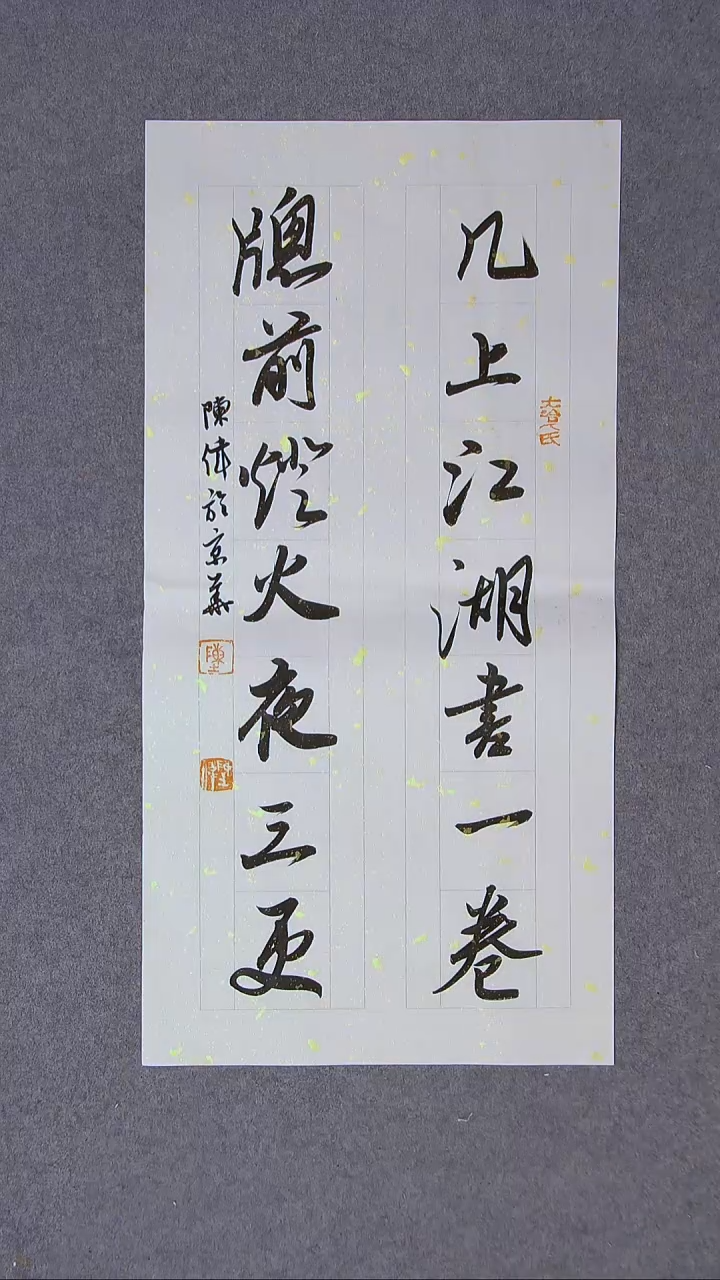 几上江湖書一卷
牕前燈火夜三更
陳偉於京華